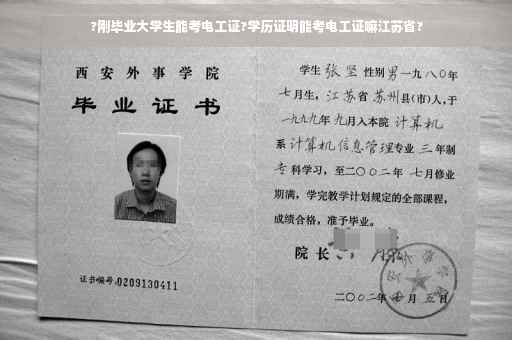 ?刚毕业大学生能考电工证?学历证明能考电工证嘛江苏省?
西安外事学院
毕业证书
证书编号:0209130411
学生 张坚 性别 男 一九八〇年
七月生，江苏省 苏州县(市)人，于
一九九九年 九月入本院 计算机
系 计算机信息管理专业 三 年制
专科学习，至二〇〇二年 七月修业
期满，学完教学计划规定的全部课程，
成绩合格，准予毕业。
院长
二〇〇二年 月 五日